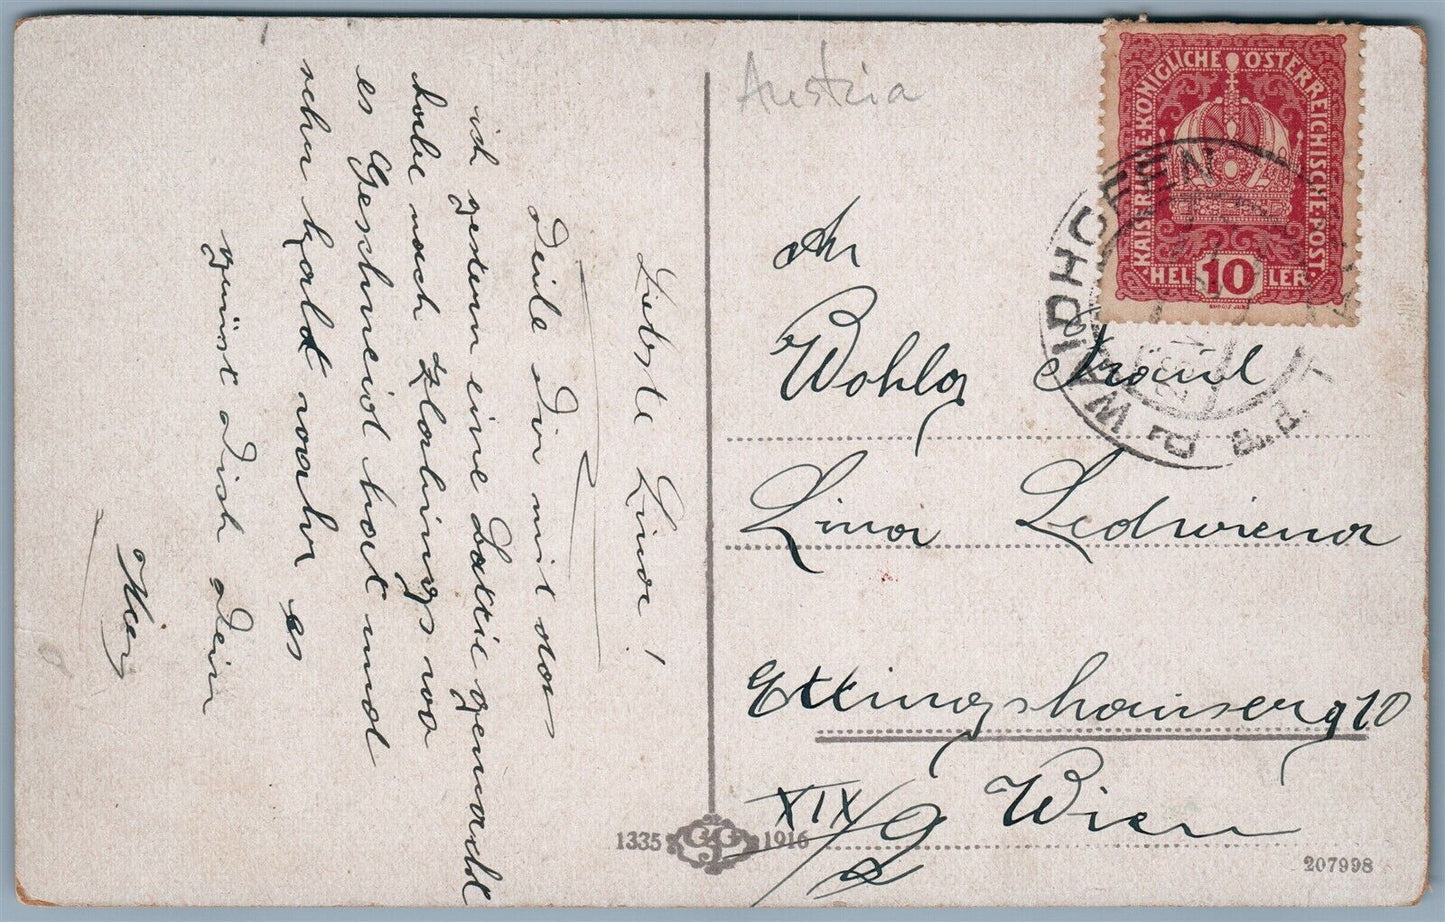 Liebste Lina!
Teile Dir mit das
ich gestern eine Partie gemacht
habe nach Hlolings wo
es Geschneid hat und
sehr kalt wahr es
grüsst dich Dein
Austria
KAIS·KÖNIGLICHE ÖSTERREICHISCHE·POST·
HEL 10 LER
WAIDHOFEN
An
Wohlg Fräul
Lina Ledwiena
Ettingshauserg 10
XIX/2 Wien
1335 1916
207998